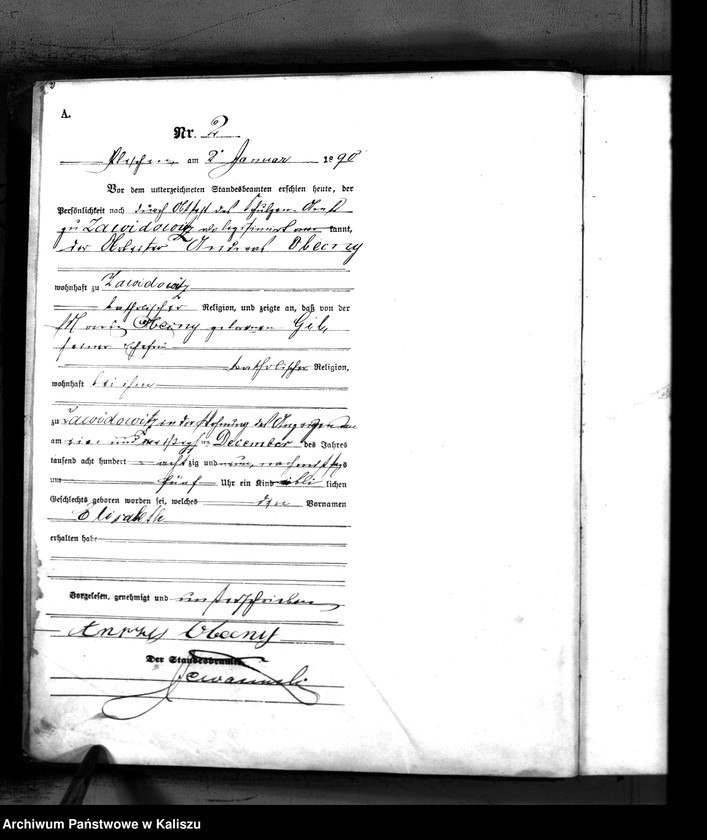 A.
Nr. 2
Pleschen, am 2. Januar 1890
Vor dem unterzeichneten Standesbeamten erschien heute, der
Persönlichkeit nach durch Attest des Schulzen-Amts
zu Zawidowitz als legitimirt an kannt,
der Arbeiter Andreas Obecny
wohnhaft zu Zawidowitz
katholischer Religion, und zeigte an, daß von der
Maria Obecny geborenen Gil,
seiner Ehefrau
katholischer Religion,
wohnhaft bei ihm
zu Zawidowitz in der Wohnung des
am ein und dreißigsten December des Jahres
tausend acht hundert achtzig und neun nachmittags
um fünf Uhr ein Kind weiblichen
Geschlechts geboren worden sei, welches den Vornamen
Elisabeth
erhalten habe
Vorgelesen, genehmigt und unterschrieben
Andrzej Obecny
Der Standesbeamte
Archiwum Państwowe w Kaliszu